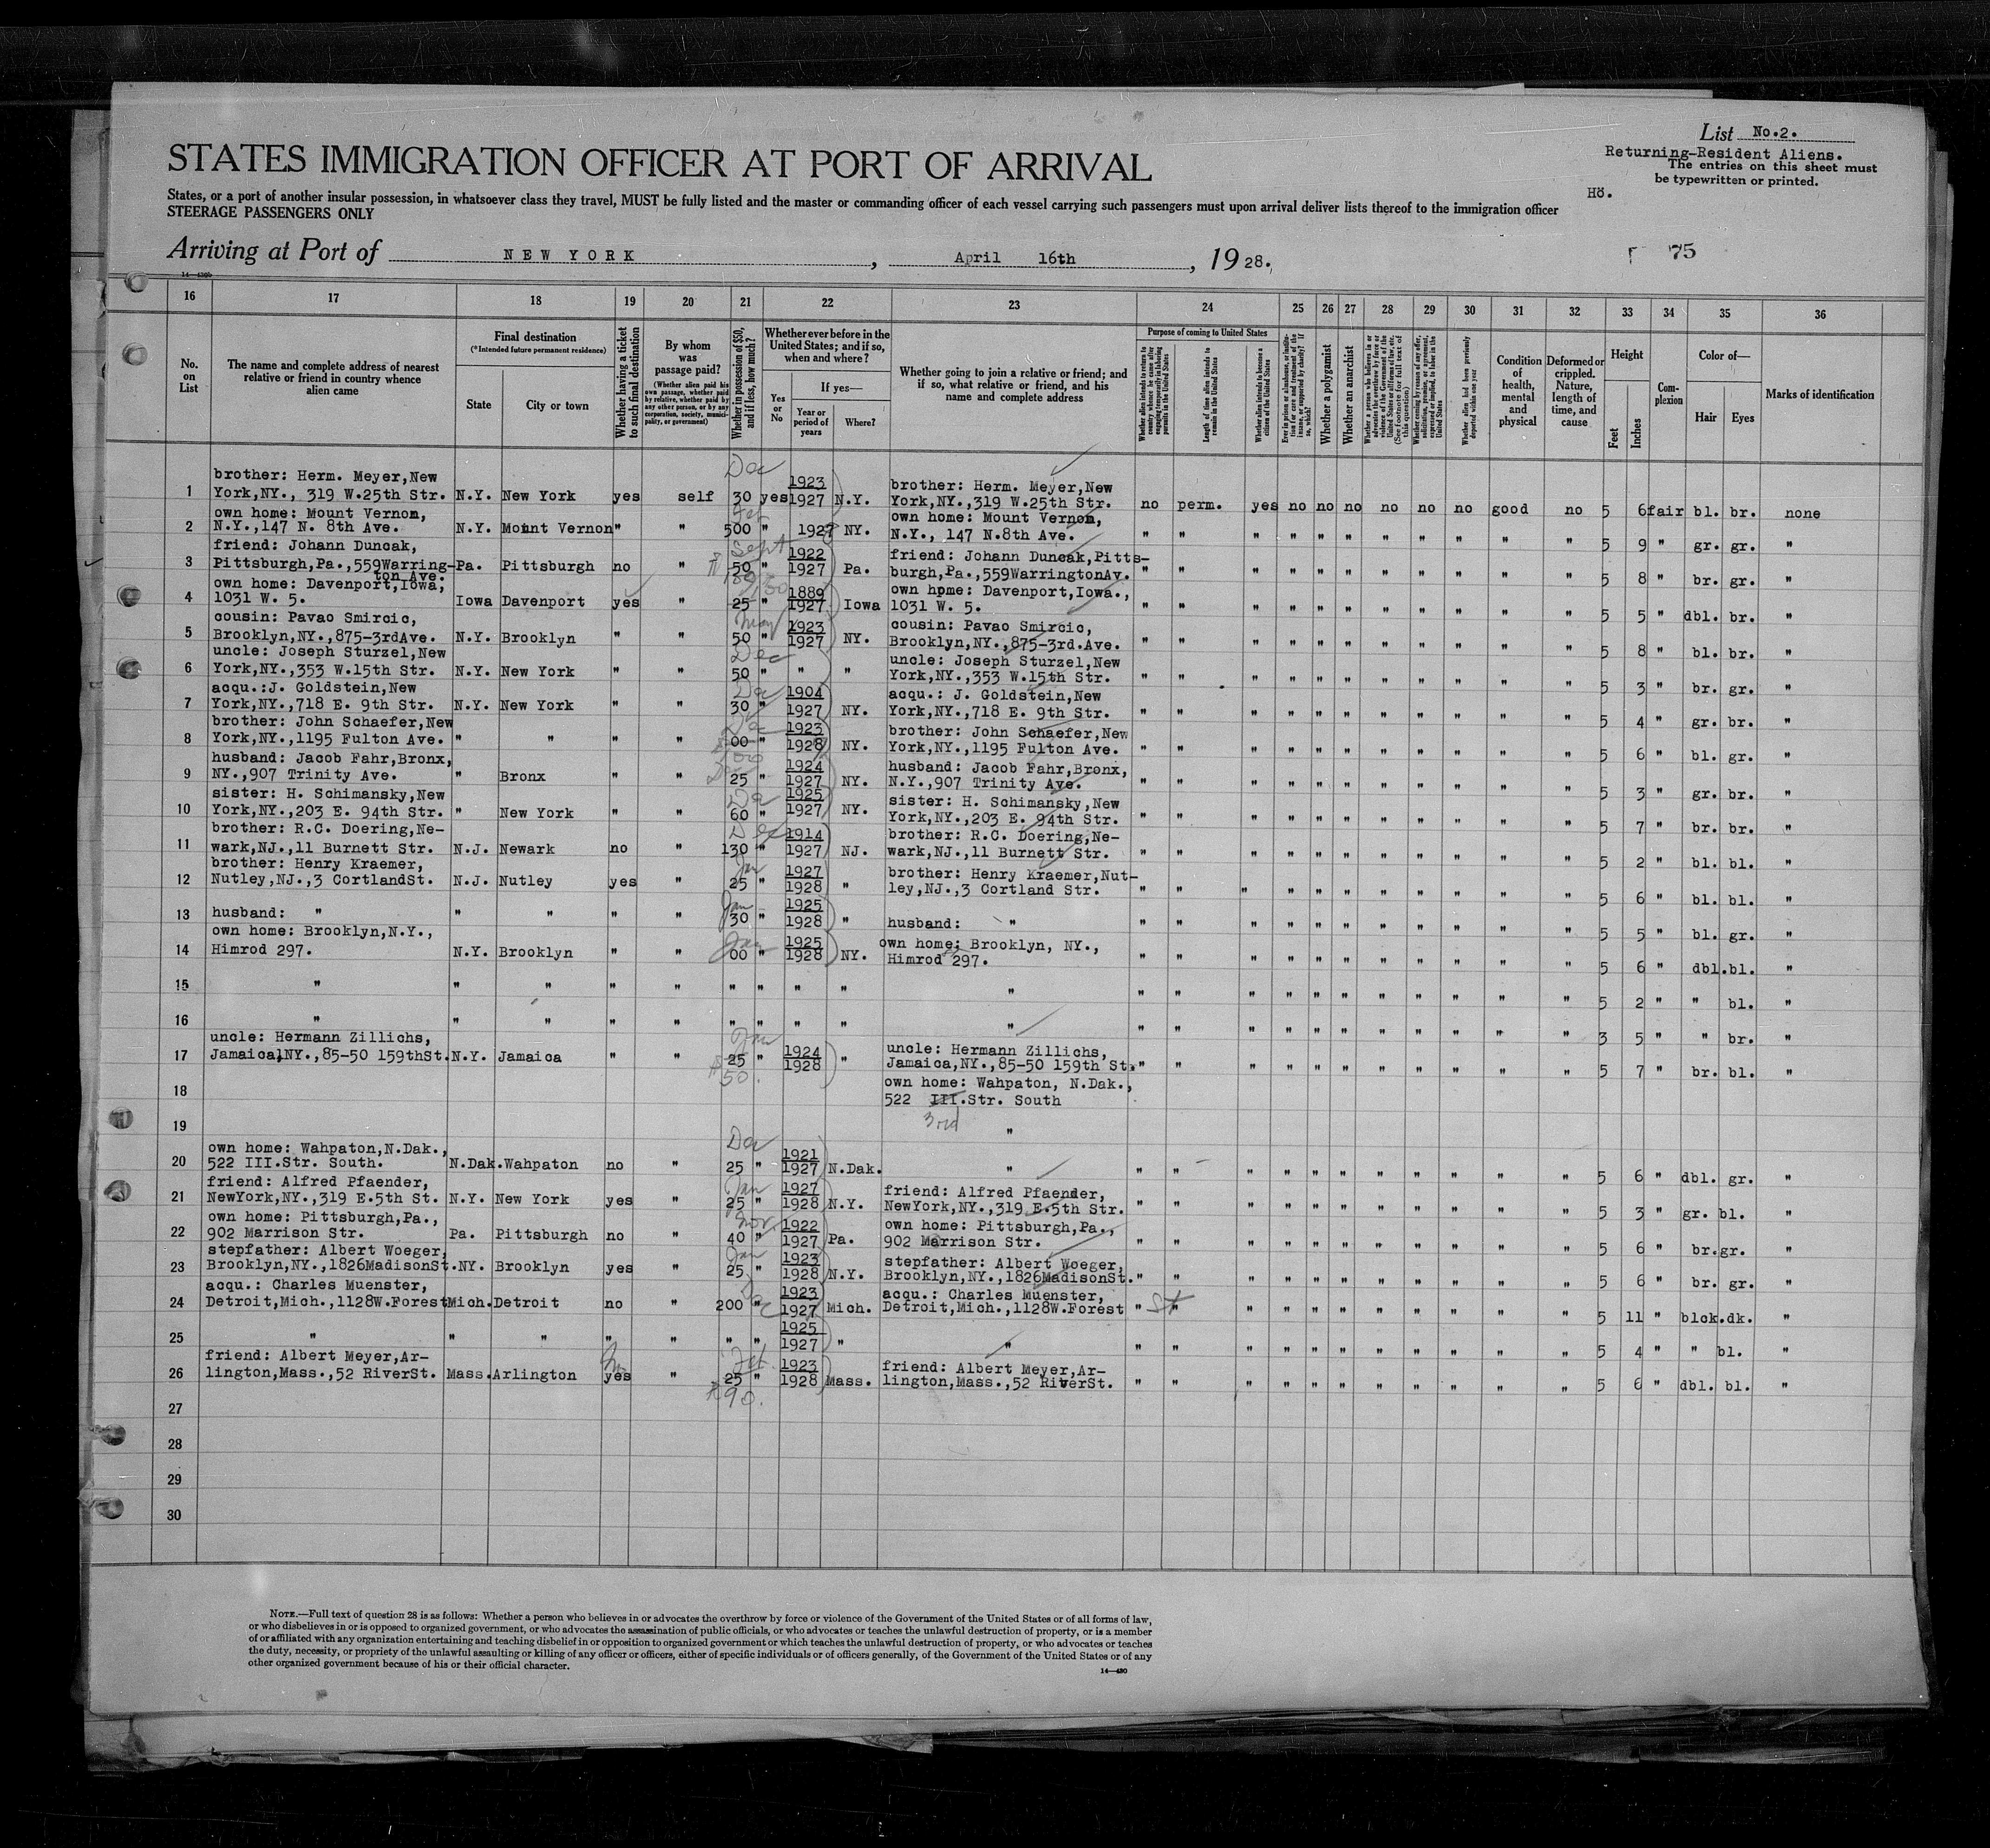 List No.2.
Returning-Resident Aliens.
The entries on this sheet must
be typewritten or printed.
Hö.
STATES IMMIGRATION OFFICER AT PORT OF ARRIVAL
States, or a port of another insular possession, in whatsoever class they travel, MUST be fully listed and the master or commanding officer of each vessel carrying such passengers must upon arrival deliver lists thereof to the immigration officer
STEERAGE PASSENGERS ONLY
Arriving at Port of NEW YORK, April 16th, 1928.
75
16 17 18 19 20 21 22 23 24 25 26 27 28 29 30 31 32 33 34 35 36
No. on List
The name and complete address of nearest relative or friend in country whence alien came
Final destination
(*Intended future permanent residence)
State
City or town
Whether having a ticket to such final destination
By whom was passage paid?
(Whether alien paid his own passage, whether paid by relative, whether paid by any other person, or by any corporation, society, municipality, or government)
Whether in possession of $50, and if less, how much?
Whether ever before in the United States; and if so, when and where?
Yes or No
If yes—
Year or period of years
Where?
Whether going to join a relative or friend; and if so, what relative or friend, and his name and complete address
Purpose of coming to United States
Length of time alien intends to remain in the United States
Whether alien intends to become a citizen of the United States
Whether a polygamist
Whether an anarchist
Condition of health, mental and physical
Deformed or crippled. Nature, length of time, and cause
Height
Feet
Inches
Complexion
Color of—
Hair
Eyes
Marks of identification
1 brother: Herm. Meyer,New York,NY., 319 W.25th Str. N.Y. New York yes self 30 yes 1923 1927 N.Y. brother: Herm. Meyer,New York,NY.,319 W.25th Str. no perm. yes no no no no no no good no 5 6 fair bl. br. none
2 own home: Mount Vernon, N.Y.,147 N. 8th Ave. N.Y. Mount Vernon " " 500 " 1927 NY. own home: Mount Vernon, N.Y., 147 N.8th Ave. " " " " " " " " " " " 5 9 " gr. gr. "
3 friend: Johann Duncak, Pittsburgh,Pa.,559Warrington Ave. Pa. Pittsburgh no " 50 " 1922 1927 Pa. friend: Johann Duncak,Pittsburgh,Pa.,559WarringtonAv. " " " " " " " " " " " 5 8 " br. gr. "
4 own home: Davenport,Iowa, 1031 W. 5. Iowa Davenport yes " 25 " 1889 1927 Iowa own home: Davenport,Iowa., 1031 W. 5. " " " " " " " " " " " 5 5 " dbl. br. "
5 cousin: Pavao Smircic, Brooklyn,NY.,875-3rdAve. N.Y. Brooklyn " " 50 " 1923 1927 NY. cousin: Pavao Smircic, Brooklyn,NY.,875-3rd.Ave. " " " " " " " " " " " 5 8 " bl. br. "
6 uncle: Joseph Sturzel,New York,NY.,353 W.15th Str. N.Y. New York " " 50 " " " uncle: Joseph Sturzel,New York,NY.,353 W.15th Str. " " " " " " " " " " " 5 3 " br. gr. "
7 acqu.:J. Goldstein,New York,NY.,718 E. 9th Str. N.Y. New York " " 30 " 1904 1927 NY. acqu.: J. Goldstein,New York,NY.,718 E. 9th Str. " " " " " " " " " " " 5 4 " gr. br. "
8 brother: John Schaefer,New York,NY.,1195 Fulton Ave. " " " " 00 " 1923 1928 NY. brother: John Schaefer,New York,NY.,1195 Fulton Ave. " " " " " " " " " " " 5 6 " bl. gr. "
9 husband: Jacob Fahr,Bronx, NY.,907 Trinity Ave. " Bronx " " 25 " 1924 1927 NY. husband: Jacob Fahr,Bronx, N.Y.,907 Trinity Ave. " " " " " " " " " " " 5 3 " gr. br. "
10 sister: H. Schimansky,New York,NY.,203 E. 94th Str. " New York " " 60 " 1925 1927 NY. sister: H. Schimansky,New York,NY.,203 E. 94th Str. " " " " " " " " " " " 5 7 " br. br. "
11 brother: R.C. Doering,Newark,NJ.,11 Burnett Str. N.J. Newark no " 130 " 1914 1927 NJ. brother: R.C. Doering,Newark,NJ.,11 Burnett Str. " " " " " " " " " " " 5 2 " bl. bl. "
12 brother: Henry Kraemer, Nutley,NJ.,3 CortlandSt. N.J. Nutley yes " 25 " 1927 1928 " brother: Henry Kraemer,Nutley,NJ.,3 Cortland Str. " " " " " " " " " " " 5 6 " bl. bl. "
13 husband: " " " " " 30 " 1925 1928 " husband: " " " " " " " " " " " " 5 5 " bl. gr. "
14 own home: Brooklyn,N.Y., Himrod 297. N.Y. Brooklyn " " 00 " 1925 1928 NY. own home: Brooklyn, NY., Himrod 297. " " " " " " " " " " " 5 6 " dbl. bl. "
15 " " " " " " " " " " " " " " " " " " " " " 5 2 " " bl. "
16 " " " " " " " " " " " " " " " " " " " " " 3 5 " " br. "
17 uncle: Hermann Zillichs, Jamaica,NY.,85-50 159thSt. N.Y. Jamaica " " 25 " 1924 1928 " uncle: Hermann Zillichs, Jamaica,NY.,85-50 159th St. " " " " " " " " " " " 5 7 " br. bl. "
$ 50.
18 own home: Wahpaton, N.Dak., 522 III.Str. South
3rd
19 "
20 own home: Wahpaton,N.Dak., 522 III.Str. South. N.Dak. Wahpaton no " 25 " 1921 1927 N.Dak. " " " " " " " " " " " " 5 6 " dbl. gr. "
21 friend: Alfred Pfaender, NewYork,NY.,319 E.5th St. N.Y. New York yes " 25 " 1927 1928 N.Y. friend: Alfred Pfaender, NewYork,NY.,319 E.5th Str. " " " " " " " " " " " 5 3 " gr. bl. "
22 own home: Pittsburgh,Pa., 902 Marrison Str. Pa. Pittsburgh no " 40 " 1922 1927 Pa. own home: Pittsburgh,Pa., 902 Marrison Str. " " " " " " " " " " " 5 6 " br. gr. "
23 stepfather: Albert Woeger, Brooklyn,NY.,1826MadisonSt. NY. Brooklyn yes " 25 " 1923 1928 N.Y. stepfather: Albert Woeger, Brooklyn,NY.,1826MadisonSt. " " " " " " " " " " " 5 6 " br. gr. "
24 acqu.: Charles Muenster, Detroit,Mich.,1128W.Forest Mich. Detroit no " 200 " 1923 1927 Mich. acqu.: Charles Muenster, Detroit,Mich.,1128W.Forest St " " " " " " " " " " " 5 11 " blck. dk. "
25 " " " " " " " 1925 1927 " " " " " " " " " " " " " 5 4 " " bl. "
26 friend: Albert Meyer,Arlington,Mass.,52 RiverSt. Mass. Arlington yes " 25 " 1923 1928 Mass. friend: Albert Meyer,Arlington,Mass.,52 RiverSt. " " " " " " " " " " " 5 6 " dbl. bl. "
$ 90.
27
28
29
30
NOTE.—Full text of question 28 is as follows: Whether a person who believes in or advocates the overthrow by force or violence of the Government of the United States or of all forms of law,
or who disbelieves in or is opposed to organized government, or who advocates the assassination of public officials, or who advocates or teaches the unlawful destruction of property, or is a member
of or affiliated with any organization entertaining and teaching disbelief in or opposition to organized government or which teaches the unlawful destruction of property, or who advocates or teaches
the duty, necessity, or propriety of the unlawful assaulting or killing of any officer or officers, either of specific individuals or of officers generally, of the Government of the United States or of any
other organized government because of his or their official character.
14—430